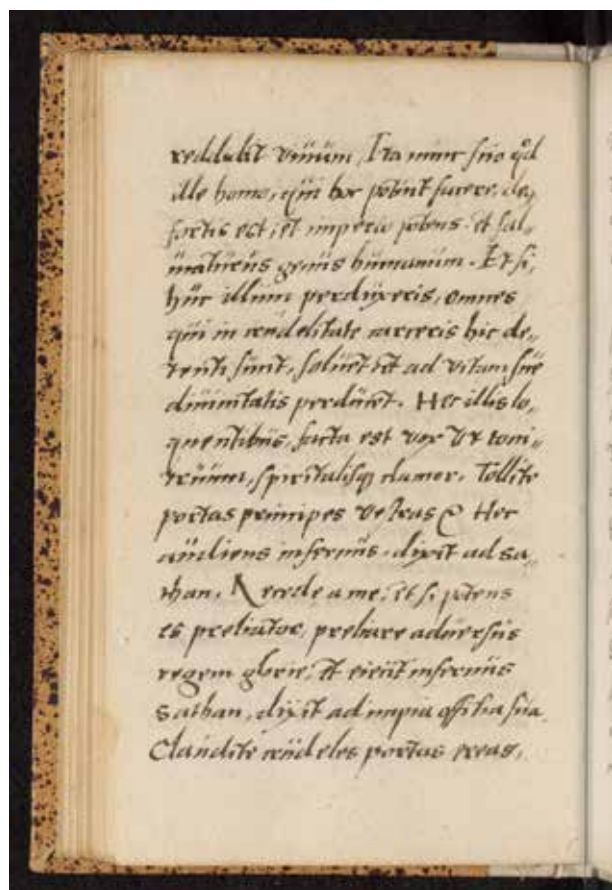 reddidit viuum, Ita nunc scio qd
ille homo, qui hoc potuit facere, de9
fortis est, et imperio potens. et sal-
uaturus genus humanum. Et si,
huc illum perduxeris, omnes
qui in crudelitate carceris hic de-
tenti sunt, soluet et ad vitam sue
diuinitatis perducet. Hec illis lo-
quentibus, facta est vox vt toni-
truum, spiritalisq; clamor. Tollite
portas principes vestras & Hec
audiens infernus, dixit ad sa-
than. Recede a me, et si potens
es preliator, preliare aduersus
regem glorie, et eiecit infernus
Sathan, dixit ad impia officia sua
Claudite crudeles portas ereas,